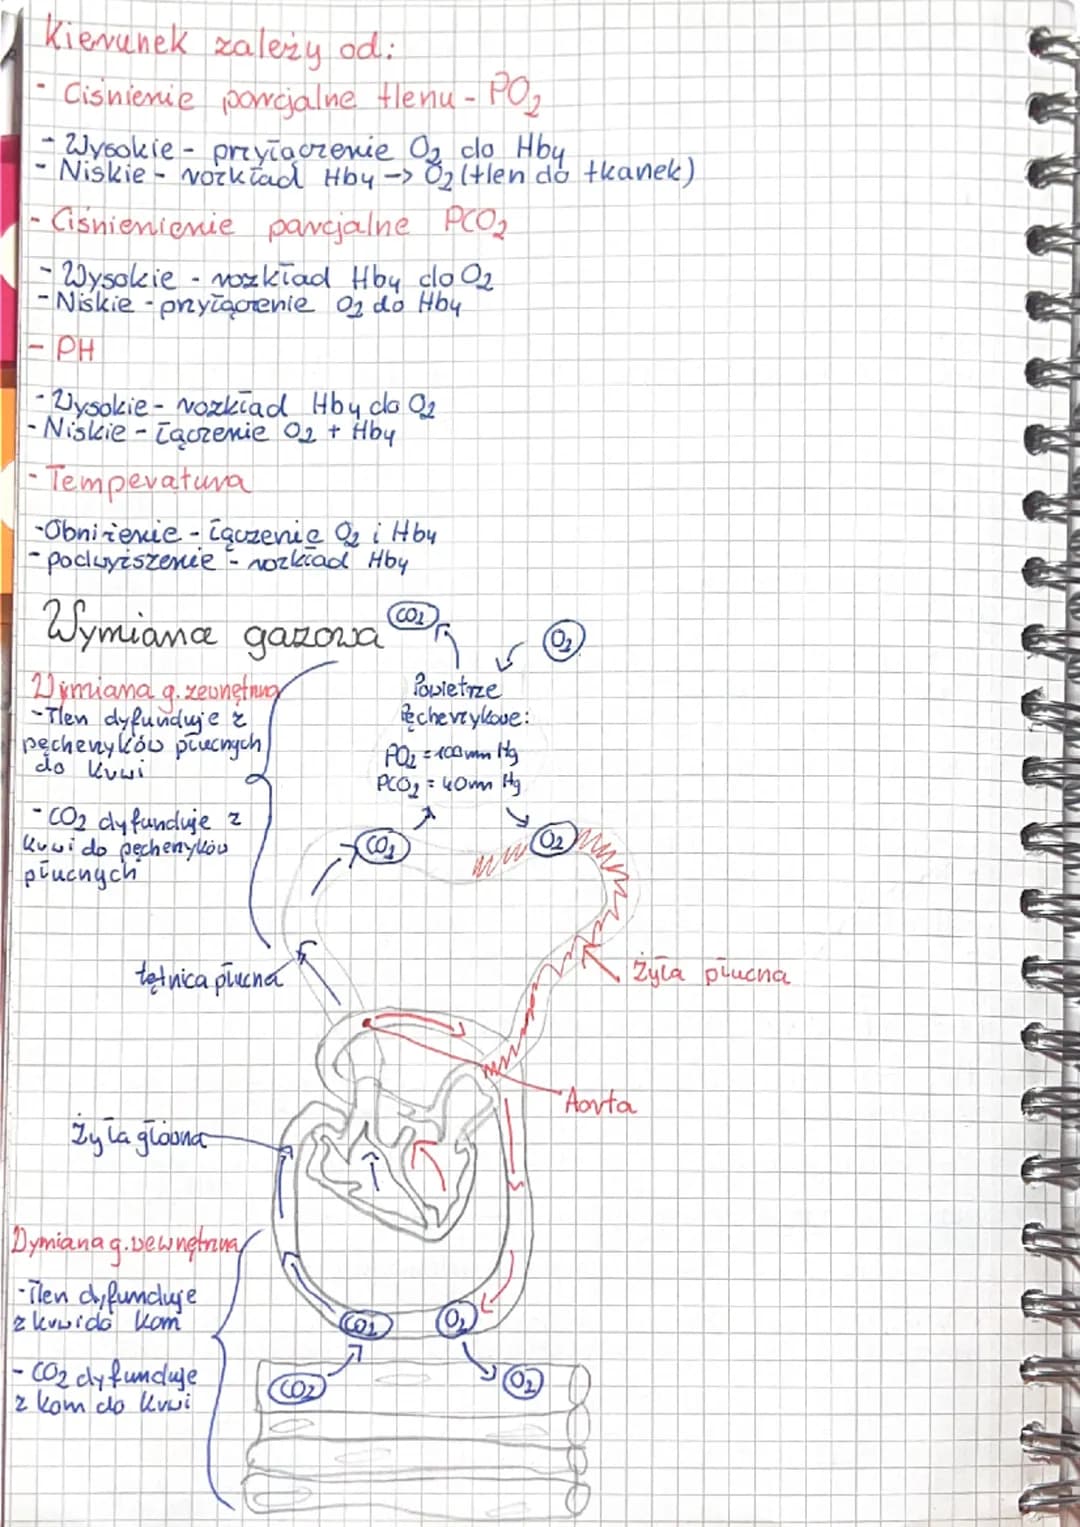 Kierunek zależy od:
- Ciśnienie parcjalne tlenu - PO2
- Wysokie - przyłączenie O2 do Hby
- Niskie - rozkład Hby -> O2 (tlen do tkanek)
- Ciśnienienie parcjalne PCO2
- Wysokie - rozkład Hby do O2
- Niskie - przyłączenie O2 do Hby
- PH
- Wysokie - rozkład Hby do O2
- Niskie - łączenie O2 + Hby
- Temperatura
- Obniżenie - łączenie O2 i Hby
- podwyższenie - rozkład Hby
Wymiana gazowa
CO2
O2
Powietrze
Pęcherzykowe:
PO2 = 100mm Hg
PCO2 = 40mm Hg
Wymiana g. zewnętrzna
- Tlen dyfunduje z
pęcherzyków płucnych
do krwi
- CO2 dyfunduje z
krwi do pęcherzyków
płucnych
CO2
O2
tętnica płucna
Żyła płucna
Aorta
Żyła główna
Wymiana g. wewnętrzna
- Tlen dyfunduje
z krwi do kom
- CO2 dyfunduje
z kom do krwi
CO2
O2
CO2
O2